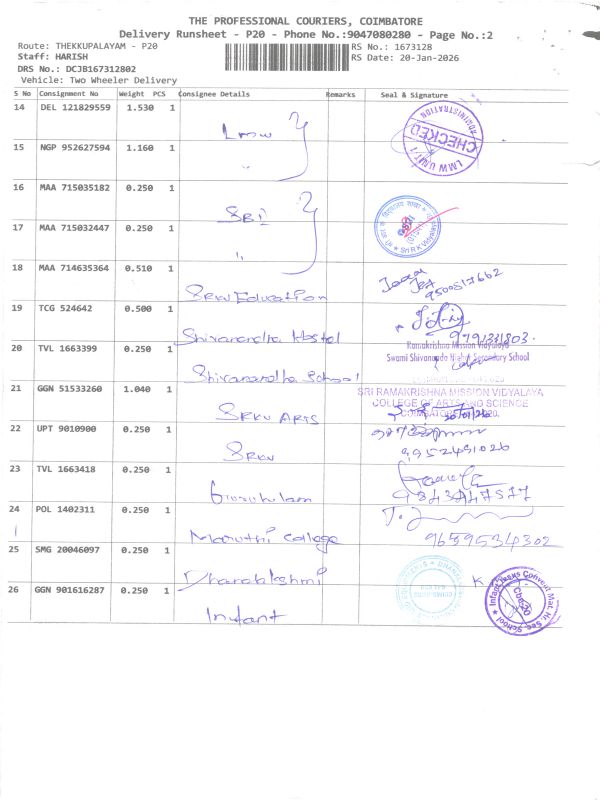 THE PROFESSIONAL COURIERS, COIMBATORE
Delivery Runsheet - P20 - Phone No.:9047080280 - Page No.:2
Route: THEKKUPALAYAM - P20
RS No.: 1673128
Staff: HARISH
RS Date: 20-Jan-2026
DRS No.: DCJB167312802
Vehicle: Two Wheeler Delivery
S No Consignment No Weight PCS Consignee Details Remarks Seal & Signature
14 DEL 121829559 1.530 1 Lmw
CHECKED
LMW UNIT-1
ADMINISTRATION
15 NGP 952627594 1.160 1
16 MAA 715035182 0.250 1 SRI
17 MAA 715032447 0.250 1 "
18 MAA 714635364 0.510 1 SRKV Education
9500517662
19 TCG 524642 0.500 1 Shivanandha Hostel
9791331803.
20 TVL 1663399 0.250 1 Shivanandha School
Ramakrishna Mission Vidyalaya
Swami Shivananda Higher Secondary School
21 GGN 51533260 1.040 1 SRKV ARTS
SRI RAMAKRISHNA MISSION VIDYALAYA
COLLEGE OF ARTS AND SCIENCE
20/01/26
22 UPT 9010900 0.250 1 SRKV
9952491026
23 TVL 1663418 0.250 1 Gurukulam
9843447577
24 POL 1402311 0.250 1 Maruthi College
9659534302
25 SMG 20046097 0.250 1 Dhanalakshmi
26 GGN 901616287 0.250 1 Infant
Infant Jesus Convent Mat. Hr. Sec. School